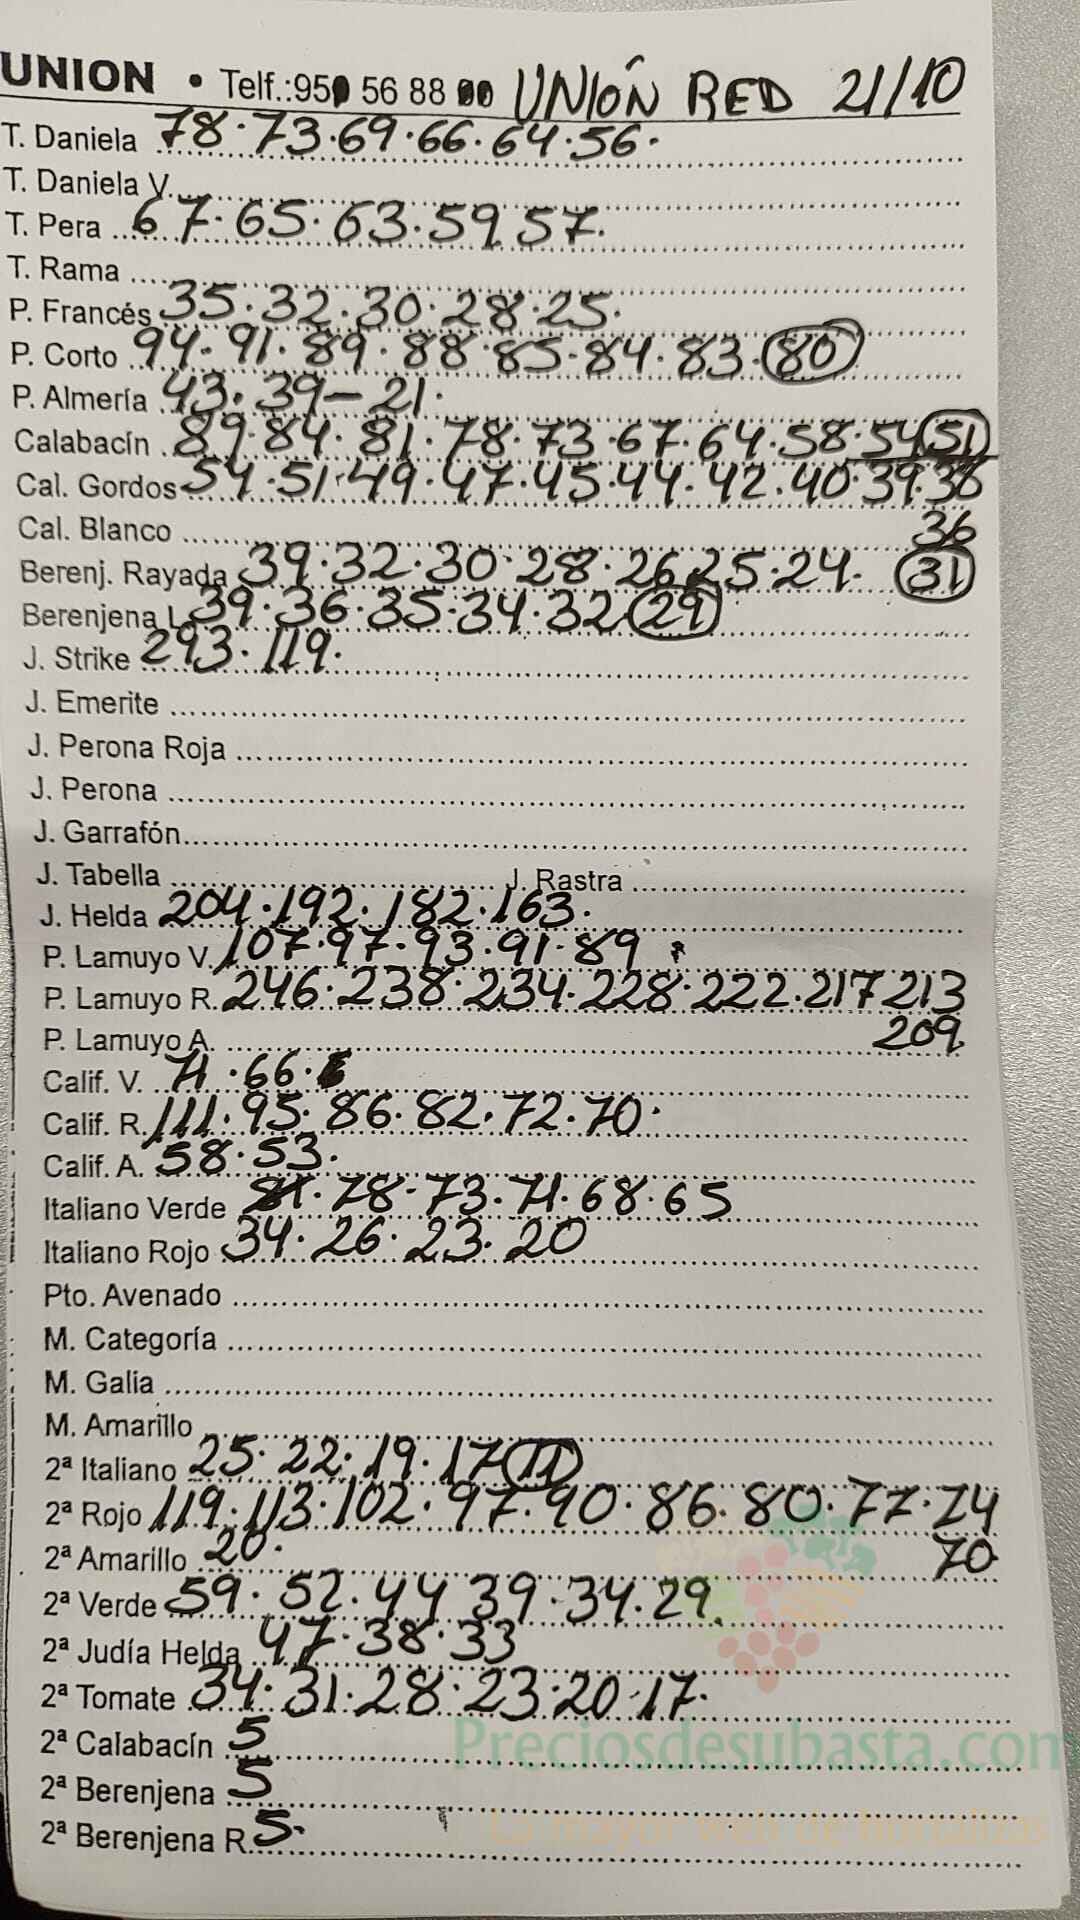 UNION • Telf.:950 56 88 00 UNIÓN RED 21/10
T. Daniela 78·73·69·66·64·56·
T. Daniela V.
T. Pera 67·65·63·59 57·
T. Rama
P. Francés 35·32·30·28·25·
P. Corto 94·91·89·88·85·84·83·80
P. Almería 43·39-21·
Calabacín 89·84·81·78·73·67·64·58·54 51
Cal. Gordos 54·51·49·47·45·44·42·40·39·38
Cal. Blanco 36
Berenj. Rayada 39·32·30·28·26 25·24· 31
Berenjena L 39·36·35·34·32 29
J. Strike 293·119·
J. Emerite
J. Perona Roja
J. Perona
J. Garrafón
J. Tabella J. Rastra
J. Helda 204·192·182·163·
P. Lamuyo V. 107·97·93·91·89
P. Lamuyo R. 246·238·234·228·222·217 213
P. Lamuyo A. 209
Calif. V. 71·66·
Calif. R. 111·95·86·82·72·70·
Calif. A. 58·53·
Italiano Verde 81·78·73·71·68·65
Italiano Rojo 34·26·23·20
Pto. Avenado
M. Categoría
M. Galia
M. Amarillo
2ª Italiano 25·22·19·17 11
2ª Rojo 119·113·102·97·90·86·80·77·74
2ª Amarillo 20· 70
2ª Verde 59·52·44 39·34·29
2ª Judía Helda 47·38·33
2ª Tomate 34·31·28·23·20·17·
2ª Calabacín 5
2ª Berenjena 5
2ª Berenjena R. 5·
Preciosdesubasta.com
La mayor web de hortalizas